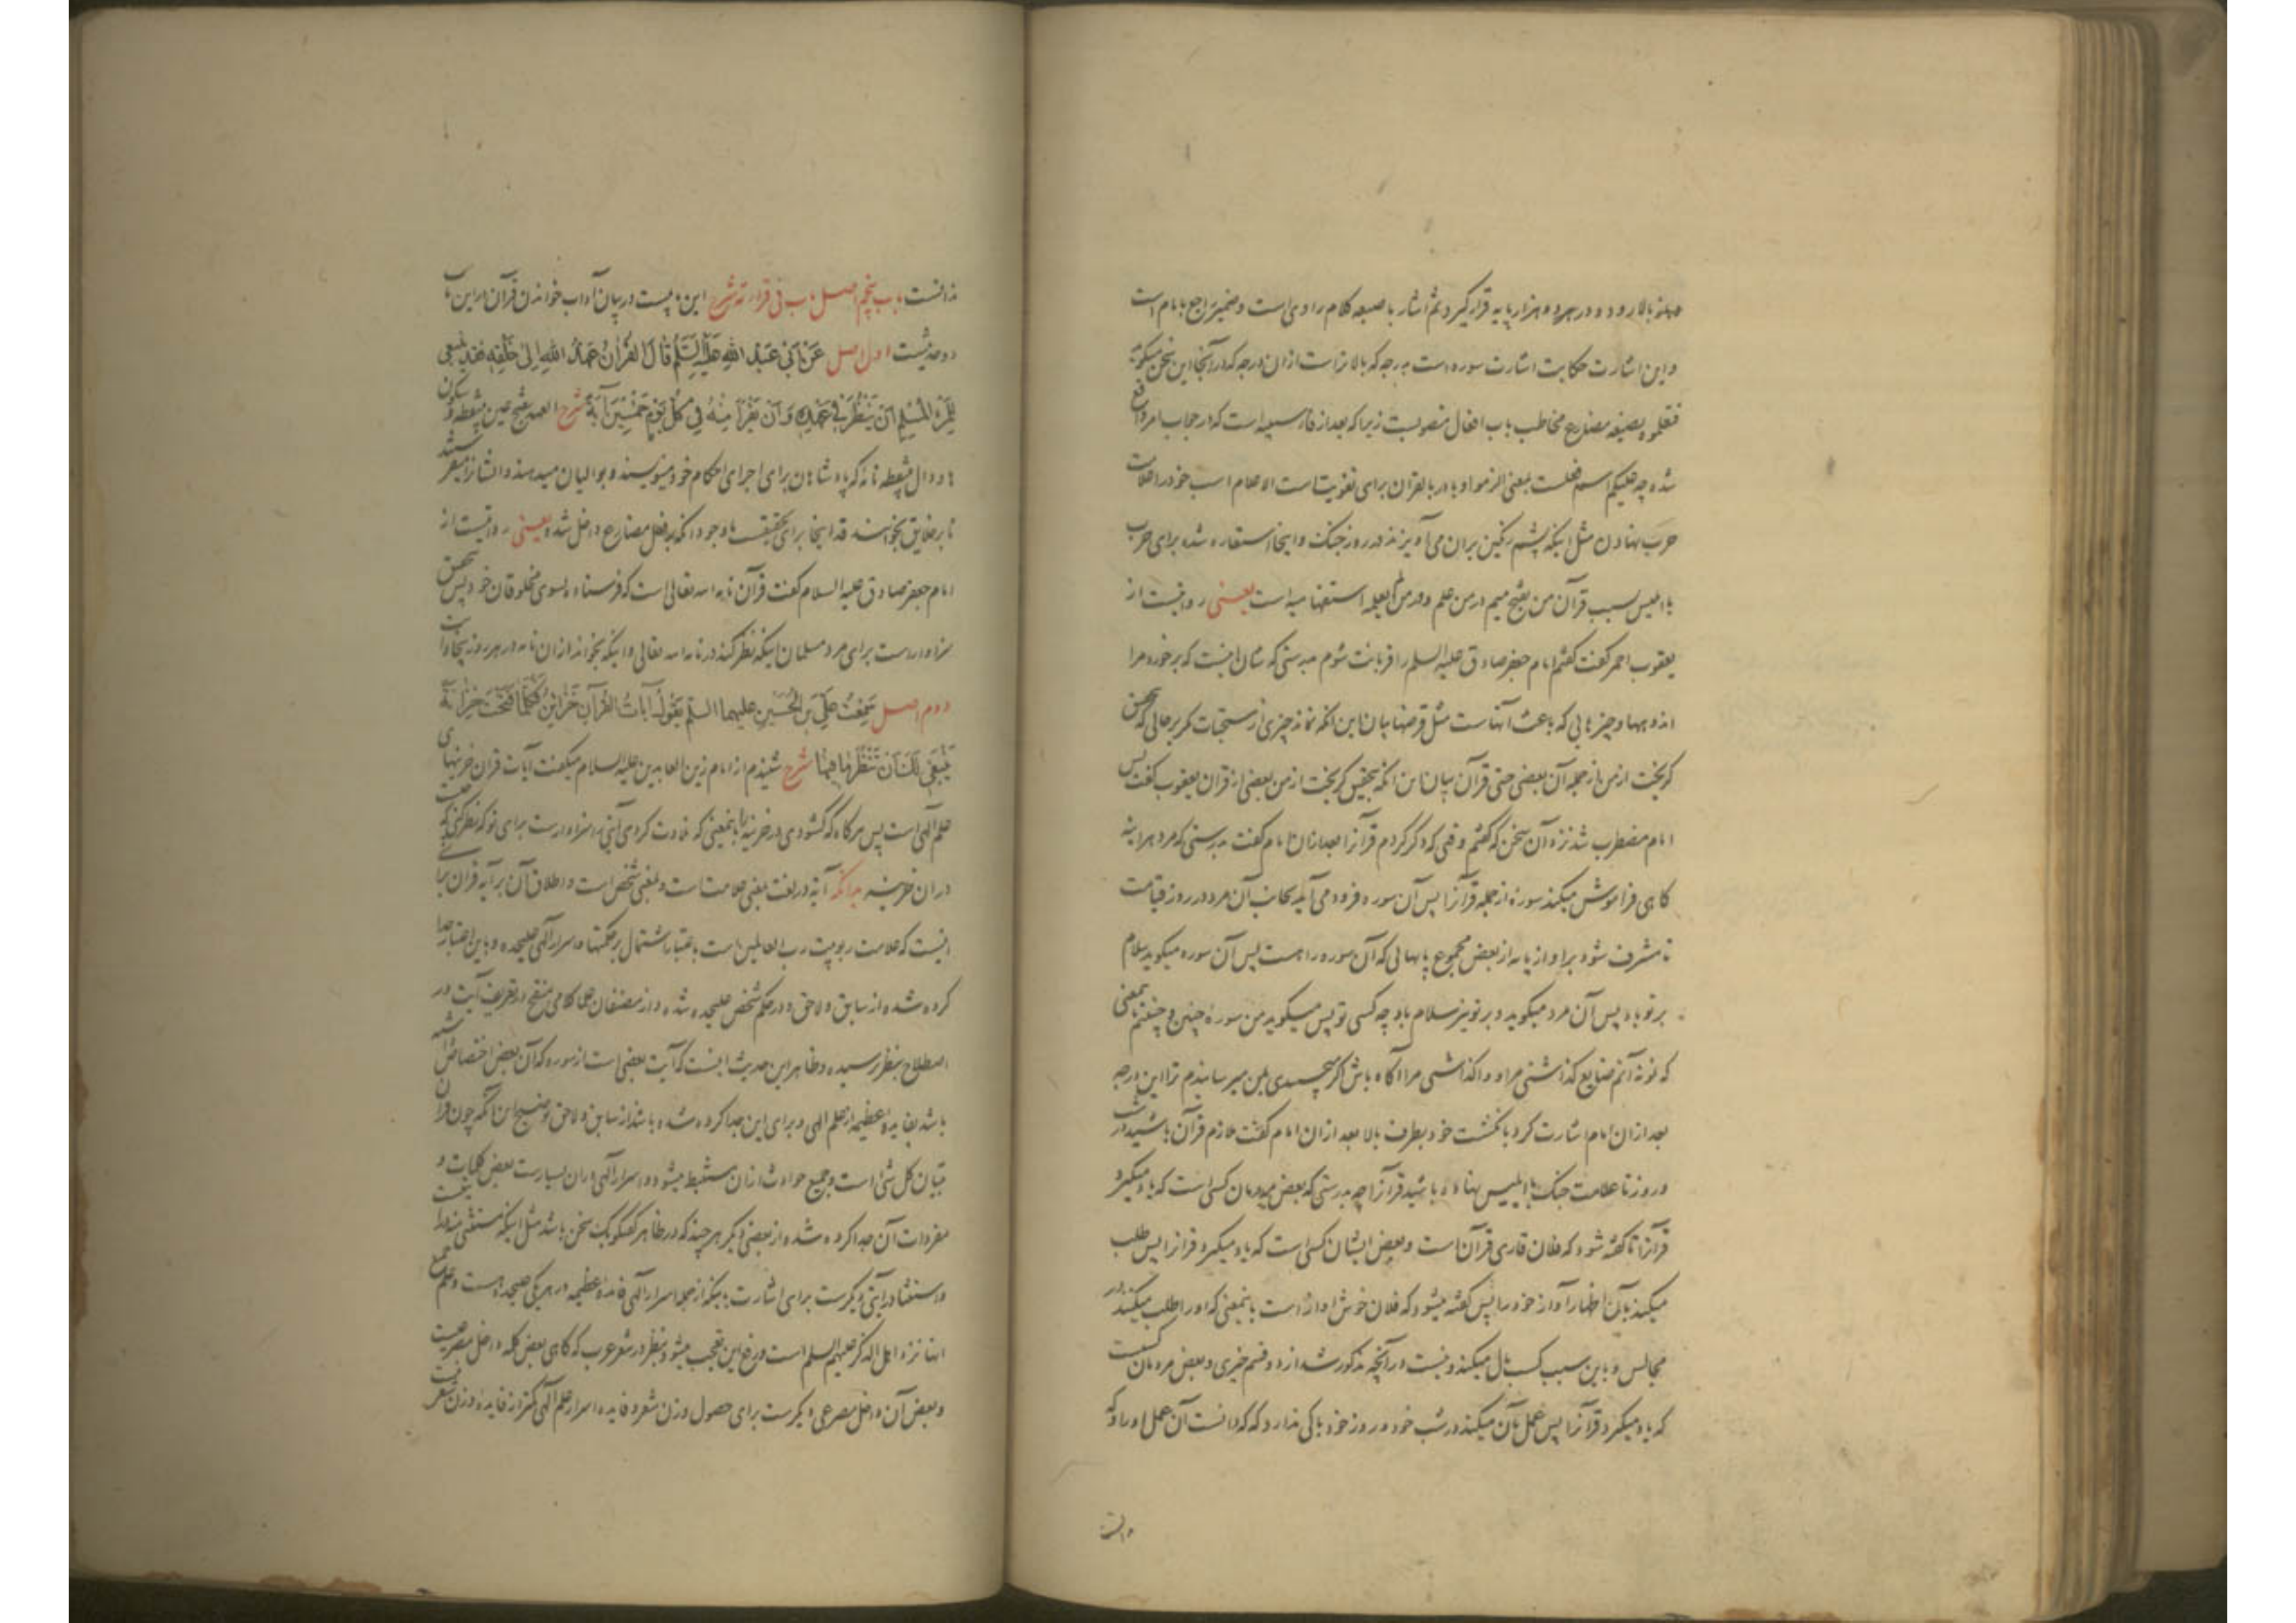 بالا رود و در هر دو هزار پایه قرار گیرد ثم اشار باصبعه کلام راوی است و ضمیر راجع بامام است
و این اشارت حکایت اشارت سوره است بدرجه که بالاتر است از ان درجه که در آنجا این سخن میگوید
بصیغه مضارع مخاطب باب افعال منصوبست زیرا که بعد از فاء سببیه است که در جواب امر واقع
شده چه علیکم اسم فعلست بمعنی الزموا و با در بالقران برای تقویت است الاعلام اسب خود را علامت
حرب نهادن مثل اینکه پشم رنگین بران می آویزند در روز جنگ و اینجا استعاره شده برای حرب
با ابلیس بسبب قرآن من بفتح میم در من علم و در من لم یعلمه استفهامیه است یعنی روایت از
یعقوب احمر گفت گفتم امام جعفر صادق علیه السلم را قربانت شوم بدرستی که شان اینست که برخورد مرا
اندوهها و چیزهایی که باعث آنهاست مثل قرضها بیان این آنکه نماند چیزی از مستحبات مگر بر حالی که بتحقیق
گریخت از من از جمله آن بعضی حتی قرآن بیان این آنکه بتحقیق گریخت از من بعضی از قران یعقوب گفت پس
امام مضطرب شد نزد آن سخن که گفتم وقتی که ذکر کردم قرآنرا بعد از ان امام گفت بدرستی که مرد هر اینه
گاهی فراموش میکند سوره از جمله قرآنرا پس آن سوره فرود می آید بجانب آن مرد در روز قیامت
تا مشرف شود بر او از پایه از بعض مجموع پایهایی که آن سوره راست پس آن سوره میگوید سلام
بر تو باد پس آن مرد میگوید و بر تو نیز سلام باد چه کسی تو پس میگوید من سوره چنین و چنینم بمعنی
که نونه آنم ضایع گذاشتی مرا و واگذاشتی مرا آگاه باش اگر میچسبیدی بمن میرسانیدم ترا این درجه
بعد از ان امام اشارت کرد بانگشت خود بطرف بالا بعد از ان امام گفت ملازم قرآن باشید در شب
و روز تا علامت جنگ با ابلیس نهاده باشید قرآنرا چه بدرستی که بعض مردمان کسی است که یاد میگیرد
قرآنرا تا گفته شود که فلان قاری قرآن است و بعض ایشان کسی است که یاد میگیرد قرآنرا پس طلب
میکند بآن اظهار آواز خود را پس گفته میشود که فلان خوش آواز است باینمعنی که او را طلب میکنند در
مجالس و باین سبب کسب مال میکند و نیست در آنچه مذکور شد از دو قسم خیری و بعض مردمان کسیست
که یاد میگیرد قرآنرا پس عمل بآن میکند در شب خود و روز خود باکی ندارد که که دانست آن عمل او را و که
دانست
ندانست باب پنجم اصل باب فی قراءته شرح این بابیست در بیان آداب خواندن قرآن در این باب
دو حدیثست اول اصل عَنْ اَبی عَبْدِ اللهِ عَلَیْهِ السَّلَم قالَ القُرآنُ عَهْدُ اللهِ اِلی خَلْقِهِ فَقَد یَنْبَغی
لِلْمَرْءِ المُسْلِمِ اَنْ یَنْظُرَ فی عَهْدِهِ وَ اَنْ یَقْرَأَ مِنْهُ فی کُلِّ یَوْمٍ خَمْسینَ آیَةً شرح العهد بفتح عین بینقطه و سکون
ها و دال بینقطه نامه که پادشاهان برای اجرای احکام خود مینویسند و بوالیان میدهند و ایشانرا میفرستند
تا بر خلایق بخوانند قد اینجا برای تحقیقست با وجود آنکه بر فعل مضارع داخل شده یعنی روایتست از
امام جعفر صادق علیه السلام گفت قرآن نامه الله تعالی است که فرستاده بسوی مخلوقان خود پس بتحقیق
سزاوارست برای مرد مسلمان اینکه نظر کند در نامه الله تعالی و اینکه بخواند از ان نامه در هر روز پنجاه آیت
دوم اصل سَمِعْتُ عَلِیَّ بنَ الحُسَیْنِ علیهما السلم یَقُولُ آیاتُ القُرآنِ خَزائِنُ فَکُلَّما فَتَحْتَ خِزانَةً
یَنْبَغی لَکَ اَنْ تَنْظُرَ ما فیها شرح شنیدم از امام زین العابدین علیه السلام میگفت آیات قران خزینهای
علم آلهی است پس هرگاه که گشودی در خزینه را باینمعنی که تلاوت کردی آیتی را سزاوارست برای تو که نظر کنی که چیست
در ان خزینه بدانکه آیة در لغت بمعنی علامت است و بمعنی شخص است و اطلاق آن بر آیه قران برای
اینست که علامت ربوبیت رب العالمین است باعتبار اشتمال بر حکمتها و اسرار آلهی علیحده و باین اعتبار جدا
کرده شده از سابق و لاحق و در حکم شخص علیحده شده و از مصنفان علما کلامی منقح در تعریف آیت در
اصطلاح بنظر نرسیده و ظاهر این حدیث اینست که آیت بعضی است از سوره که آن بعض اختصاص داشته
باشد بفایده عظیمه از علم الهی و برای این جدا کرده شده باشد از سابق و لاحق توضیح این آنکه چون قرآن
تبیان کل شیء است و جمیع حوادث از ان مستنبط میشود و اسرار آلهی در ان بسیارست بعض کلمات و
مفردات آن جدا کرده شده از بعضی دیگر هر چند که در ظاهر گفتگو یک سخن باشد مثل اینکه مستثنی منه در آیتیست
و استثنا در آیتی دیگرست برای اشارت باینکه از جمله اسرار آلهی فایده عظیمه در هر یک علیحده هست و علم جمیع
اینها نزد اهل الذکر علیهم السلم است و رفع این تعجب میشود بنظر در شعر عرب که گاهی بعض کلمه داخل مصرعیست
و بعض آن داخل مصرعی دیگرست برای حصول وزن شعر و فایده اسرار علم آلهی کمتر از فایده وزن شعر نیست